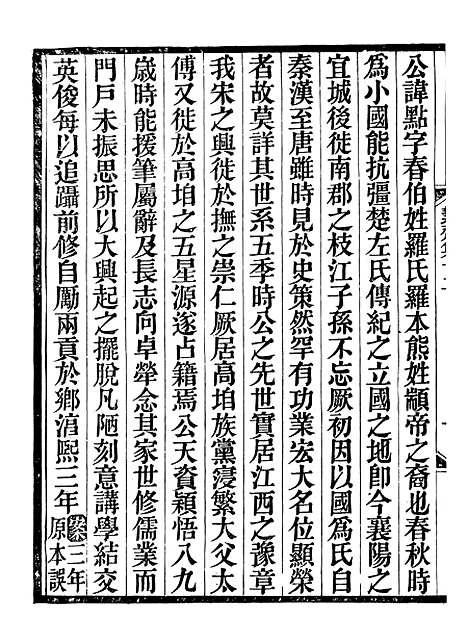 公諱點字春伯姓羅氏羅本熊姓顓帝之裔也春秋時
爲小國能抗彊楚左氏傳紀之立國之地卽今襄陽之
宜城後徙南郡之枝江子孫不忘厥初因以國爲氏自
秦漢至唐雖時見於史策然罕有功業宏大名位顯榮
者故莫詳其世系五季時公之先世實居江西之豫章
我宋之興徙於撫之崇仁厥居高㘰族黨寖繁大父太
傅又徙於高㘰之五星源遂占籍焉公天資穎悟八九
歲時能援筆屬辭及長志向卓犖念其家世修儒業而
門戶未振思所以大興起之擺脫凡陋刻意講學結交
英俊每以追躡前修自勵兩貢於鄉淯熙三年案三年
原本誤